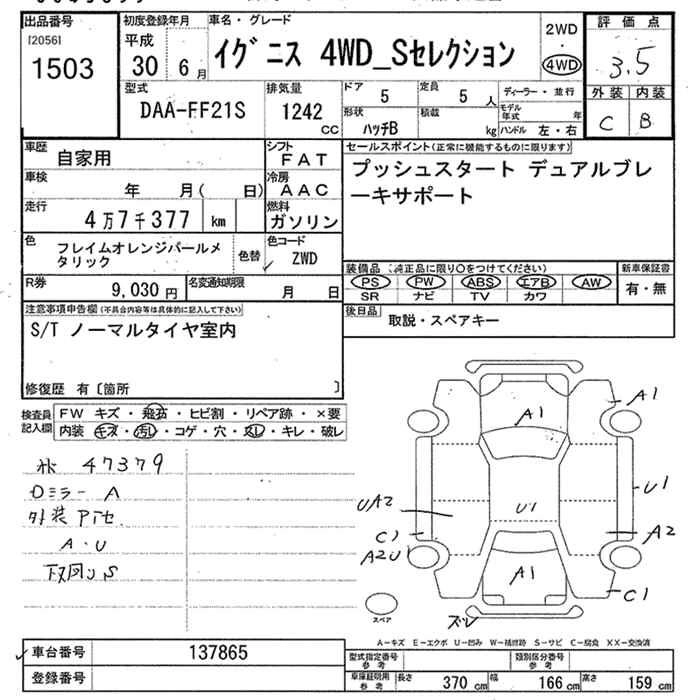 出品番号
[2056]
1503
初度登録年月
平成
30 6 月
車名・グレード
イグニス 4WD_Sセレクション
2WD
・
4WD
評価点
3.5
外装 内装
C B
型式
DAA-FF21S
排気量
1242 cc
ドア
5
定員
5 人
形状
ハッチB
積載
kg
ディーラー・並行
モデル年式 年
ハンドル 左・右
車歴
自家用
シフト
FAT
車検
年 月( 日)
冷房
AAC
走行
4万7千377 km
燃料
ガソリン
色
フレイムオレンジパールメタリック
色替
色コード
ZWD
R券
9,030 円
名変通知期限
月 日
セールスポイント(正常に機能するものに限ります)
プッシュスタート デュアルブレ
ーキサポート
装備品 (純正品に限り○をつけてください)
PS PW ABS エアB AW
SR ナビ TV カワ
新車保証書
有・無
後日品
取説・スペアキー
注意事項申告欄(不具合内容等は具体的に記入して下さい)
S/T ノーマルタイヤ室内
修復歴 有〔箇所 〕
検査員記入欄
FW キズ・飛石・ヒビ割・リペア跡・×要
内装 キズ・汚レ・コゲ・穴・スレ・キレ・破レ
47379
ロミラー A
外装
A・U
A1
A1
U1
UA2
U1
C1
A2
A2U1
A1
C1
ズレ
スペア
A-キズ E-エクボ U-凹み W-補修跡 S-サビ C-腐食 XX-交換済
車台番号
137865
登録番号
型式指定番号
参考
類別区分番号
参考
車庫証明用
参考
長さ 370 cm 幅 166 cm 高さ 159 cm